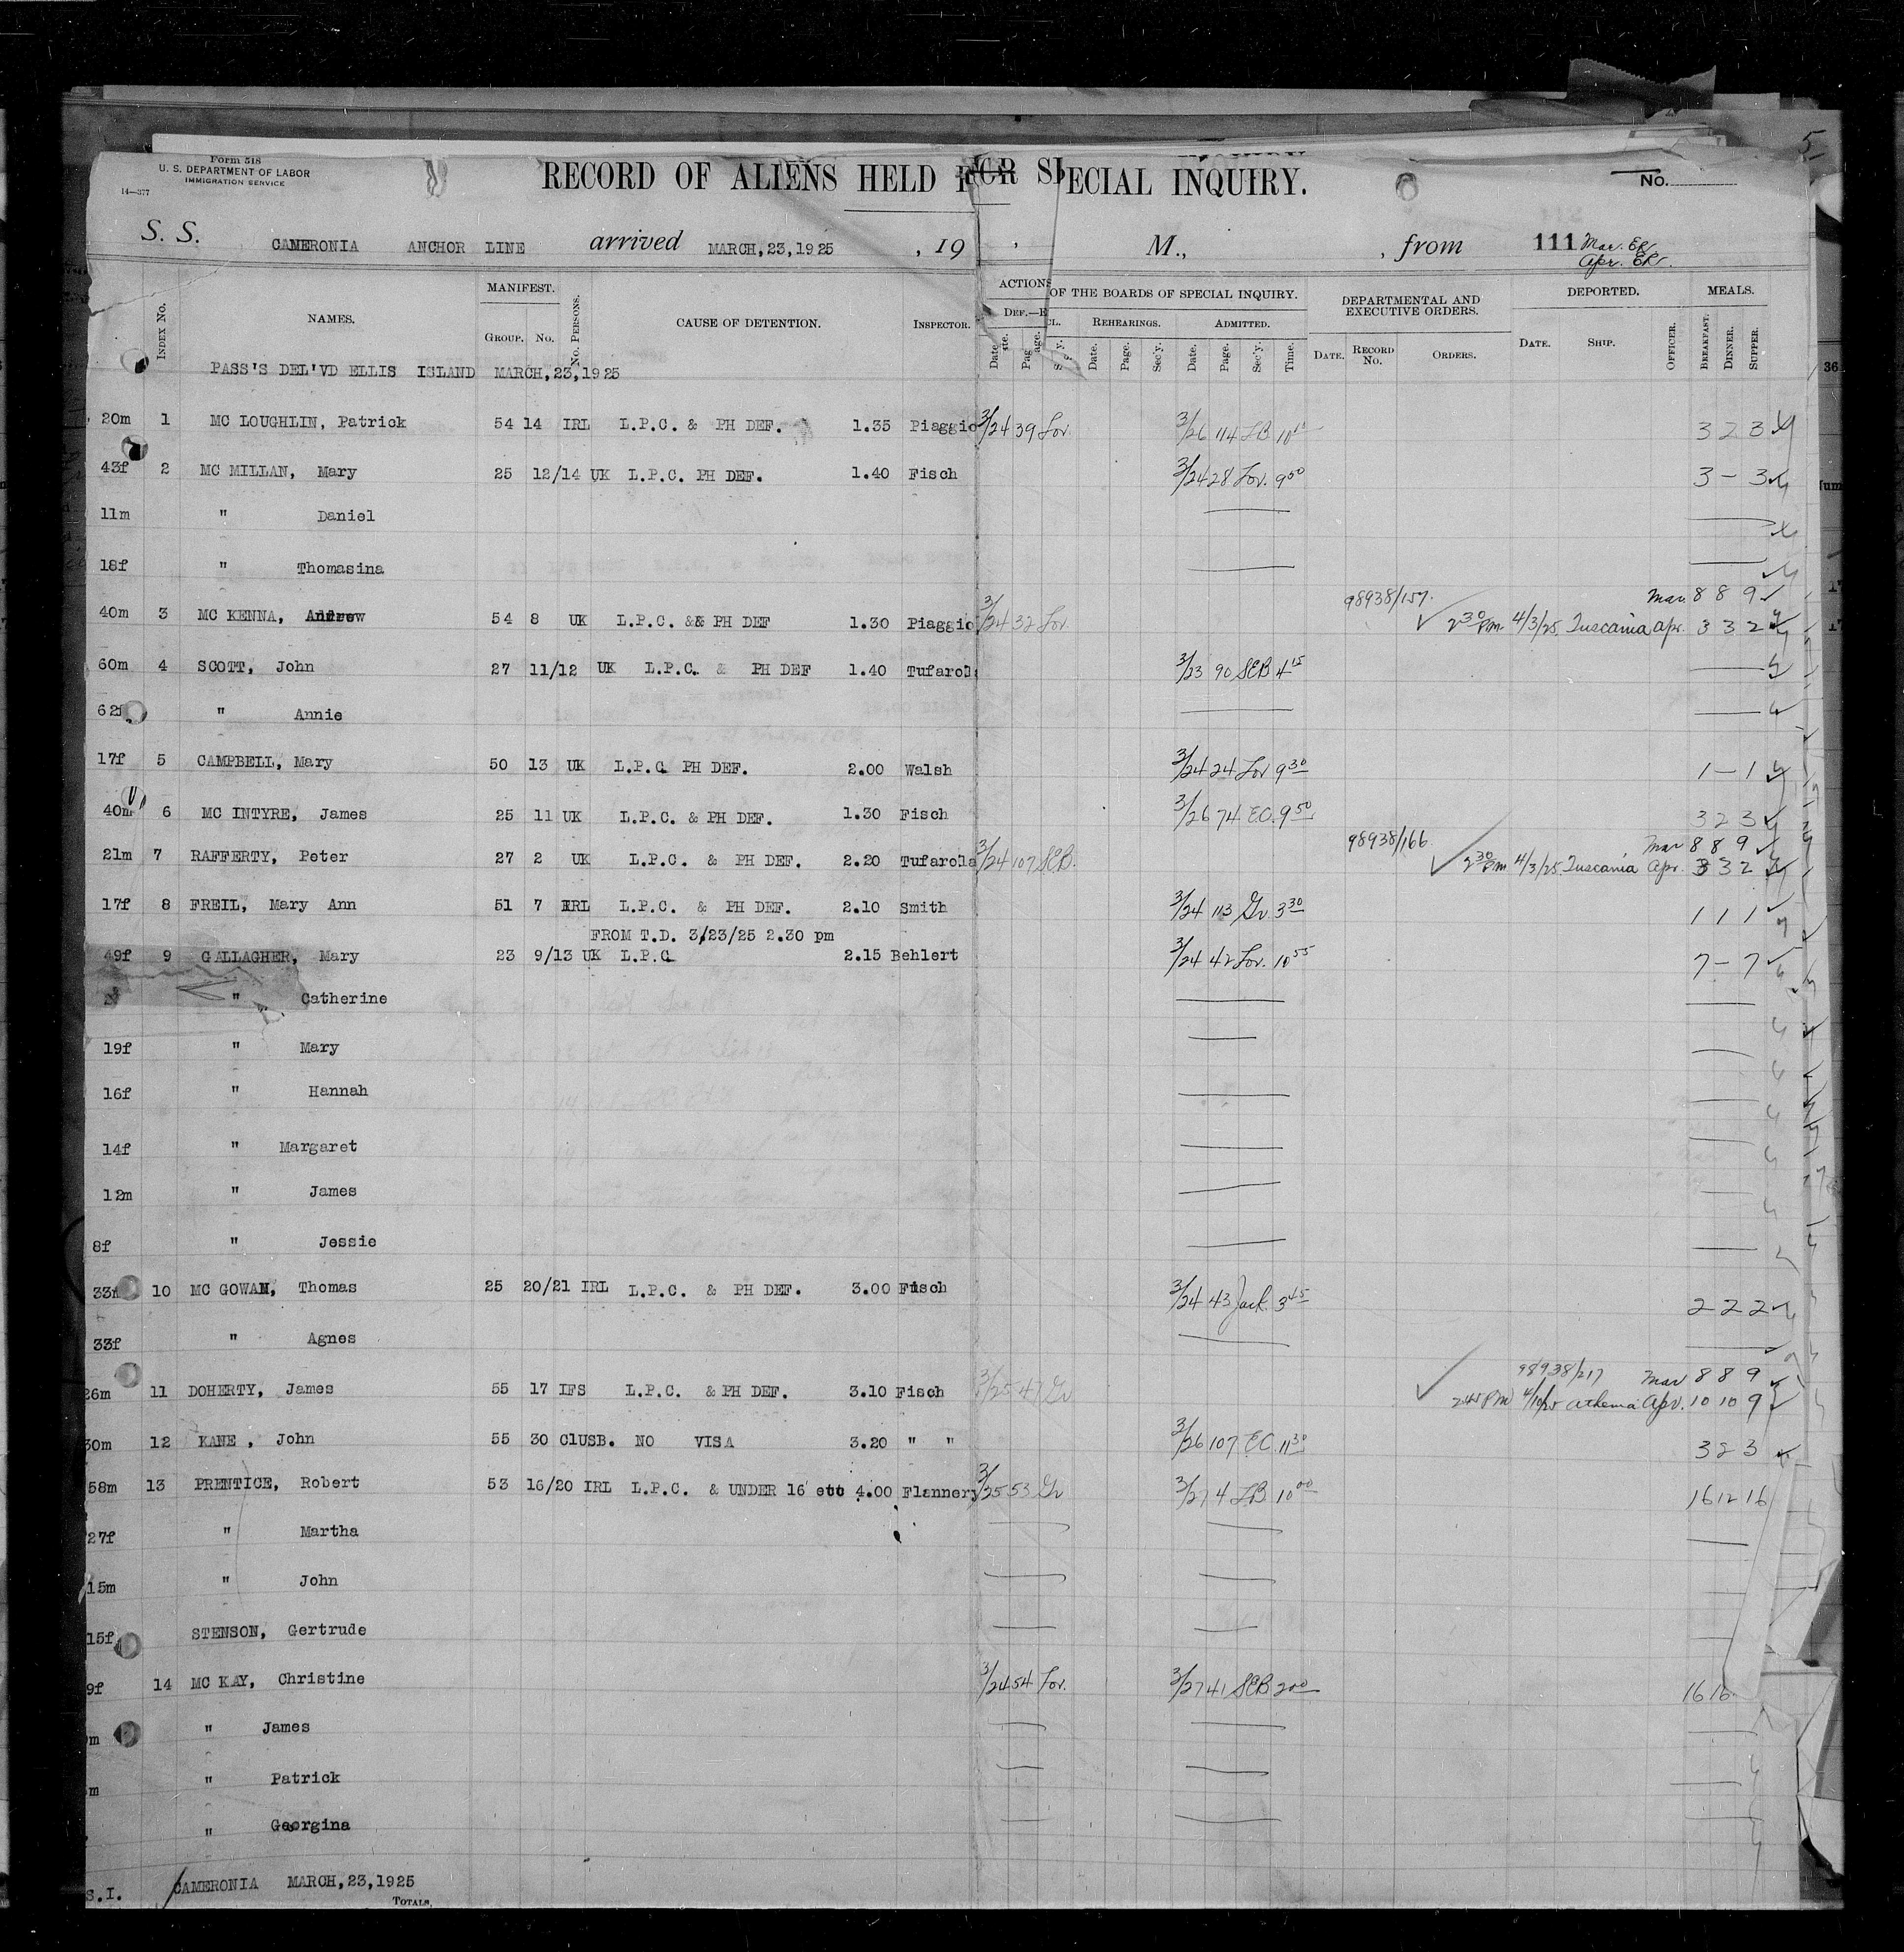 5
Form 518
U. S. DEPARTMENT OF LABOR
IMMIGRATION SERVICE
14—377
RECORD OF ALIENS HELD FOR SPECIAL INQUIRY.
No.
S. S. CAMERONIA ANCHOR LINE arrived MARCH,23,1925 , 19 , M., , from 111 Mar. ER. Apr. ER.
INDEX No. NAMES. MANIFEST. GROUP. No. No. PERSONS. CAUSE OF DETENTION. INSPECTOR. ACTIONS OF THE BOARDS OF SPECIAL INQUIRY. REHEARINGS. Date. Page. Sec'y. ADMITTED. Date. Page. Sec'y. Time. DEPARTMENTAL AND EXECUTIVE ORDERS. DATE. RECORD No. ORDERS. DEPORTED. DATE. SHIP. OFFICER. MEALS. BREAKFAST. DINNER. SUPPER.
PASS'S DEL'VD ELLIS ISLAND MARCH,23,1925
20m 1 MC LOUGHLIN, Patrick 54 14 IRL L.P.C. & PH DEF. 1.35 Piaggio 3/24 39 Lov. 3/26 114 LB 10 3 2 3
43f 2 MC MILLAN, Mary 25 12/14 UK L.P.C. PH DEF. 1.40 Fisch 3/24 28 Lov. 9 00 3 - 3
11m " Daniel
18f " Thomasina
40m 3 MC KENNA, Andrew 54 8 UK L.P.C. && PH DEF 1.30 Piaggio 3/24 32 Lov. 98938/157. 2 30 PM 4/3/25 Tuscania Mar. 8 8 9 Apr. 3 3 2
60m 4 SCOTT, John 27 11/12 UK L.P.C. & PH DEF 1.40 Tufarola 3/23 90 SEB 4 15
62f " Annie
17f 5 CAMPBELL, Mary 50 13 UK L.P.C PH DEF. 2.00 Walsh 3/24 24 Lov 9 30 1 - 1
40m 6 MC INTYRE, James 25 11 UK L.P.C. & PH DEF. 1.30 Fisch 3/26 74 E.C. 9 50 3 2 3
21m 7 RAFFERTY, Peter 27 2 UK L.P.C. & PH DEF. 2.20 Tufarola 3/24 107 SEB. 98938/166 2 30 PM 4/3/25 Tuscania Mar 8 8 9 Apr. 3 3 2
17f 8 FREIL, Mary Ann 51 7 IRL L.P.C. & PH DEF. 2.10 Smith 3/24 113 Gr 3 30 1 1 1
FROM T.D. 3/23/25 2.30 pm
49f 9 GALLAGHER, Mary 23 9/13 UK L.P.C 2.15 Behlert 3/24 42 Lov. 10 55 7 - 7
" Catherine
19f " Mary
16f " Hannah
14f " Margaret
12m " James
8f " Jessie
33m 10 MC GOWAN, Thomas 25 20/21 IRL L.P.C. & PH DEF. 3.00 Fisch 3/24 43 Jack. 3 45 2 2 2
33f " Agnes
26m 11 DOHERTY, James 55 17 IFS L.P.C. & PH DEF. 3.10 Fisch 3/25 47 Gr 98938/217 2 45 PM 4/10/25 Athenia Mar 8 8 9 Apr. 10 10 9
30m 12 KANE , John 55 30 ClUSB. NO VISA 3.20 " " 3/26 107 EC. 11 30 3 2 3
58m 13 PRENTICE, Robert 53 16/20 IRL L.P.C. & UNDER 16 etc 4.00 Flannery 3/25 53 Gr 3/27 4 LB 10 00 16 12 16
27f " Martha
15m " John
15f STENSON, Gertrude
9f 14 MC KAY, Christine 3/24 54 Lov. 3/27 41 SEB 2 00 16 16
m " James
m " Patrick
" Georgina
S.I. CAMERONIA MARCH,23,1925
TOTALS,